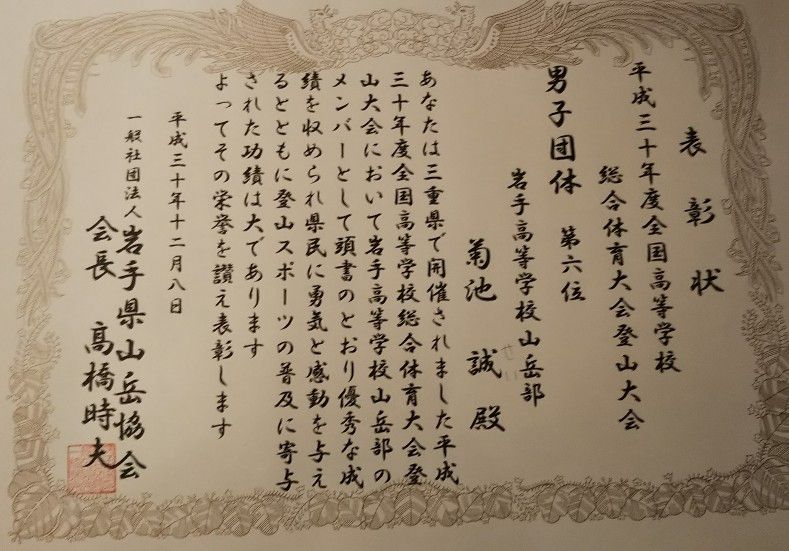 表彰状
平成三十年度全国高等学校
総合体育大会登山大会
男子団体 第六位
岩手高等学校山岳部
菊池 誠 殿
あなたは三重県で開催されました平成
三十年度全国高等学校総合体育大会登
山大会において岩手高等学校山岳部の
メンバーとして頭書のとおり優秀な成
績を収められ県民に勇気と感動を与え
るとともに登山スポーツの普及に寄与
された功績は大であります
よってその栄誉を讃え表彰します
平成三十年十二月八日
一般社団法人岩手県山岳協会
会長 髙橋時夫